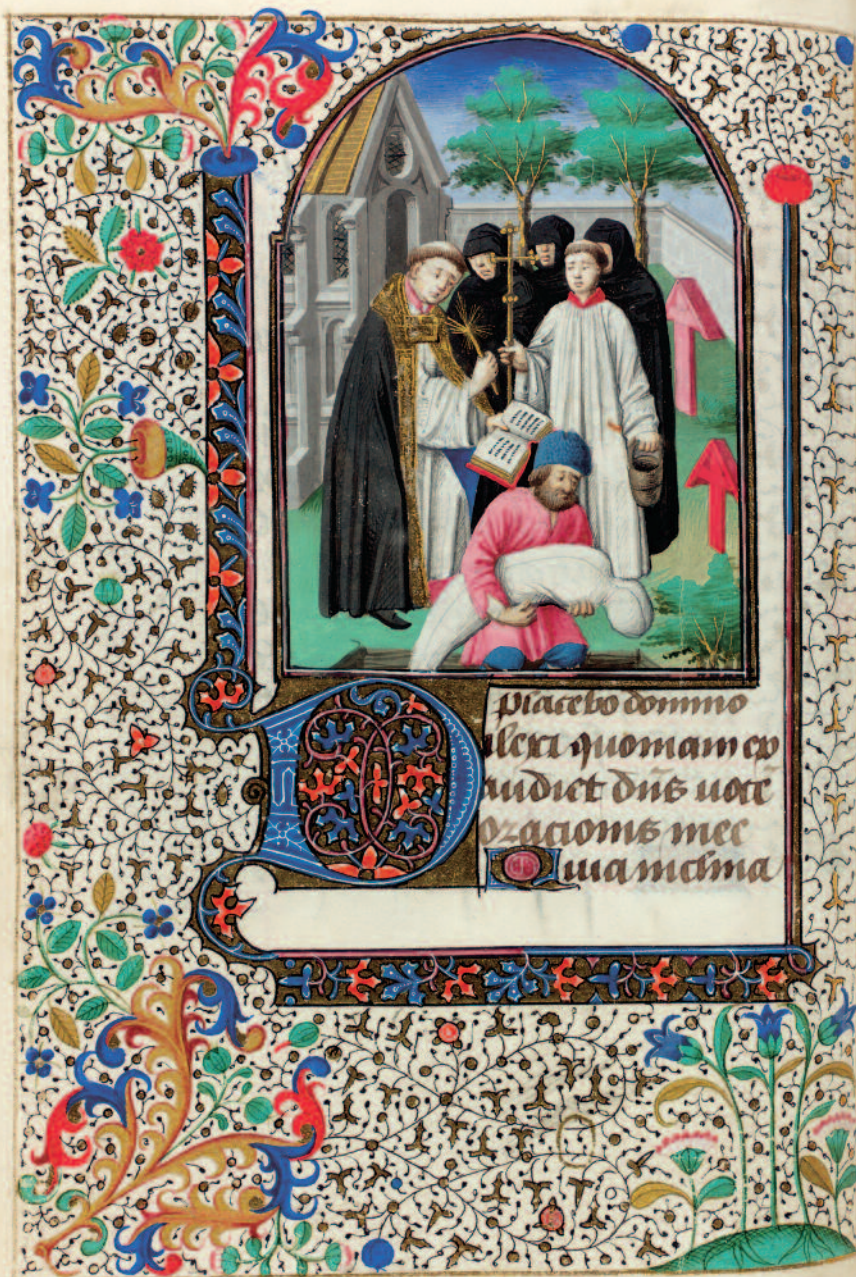 Placebo domino
Dilexi quoniam ex
audiet dñs uocē
oracionis mee
Quia inclina